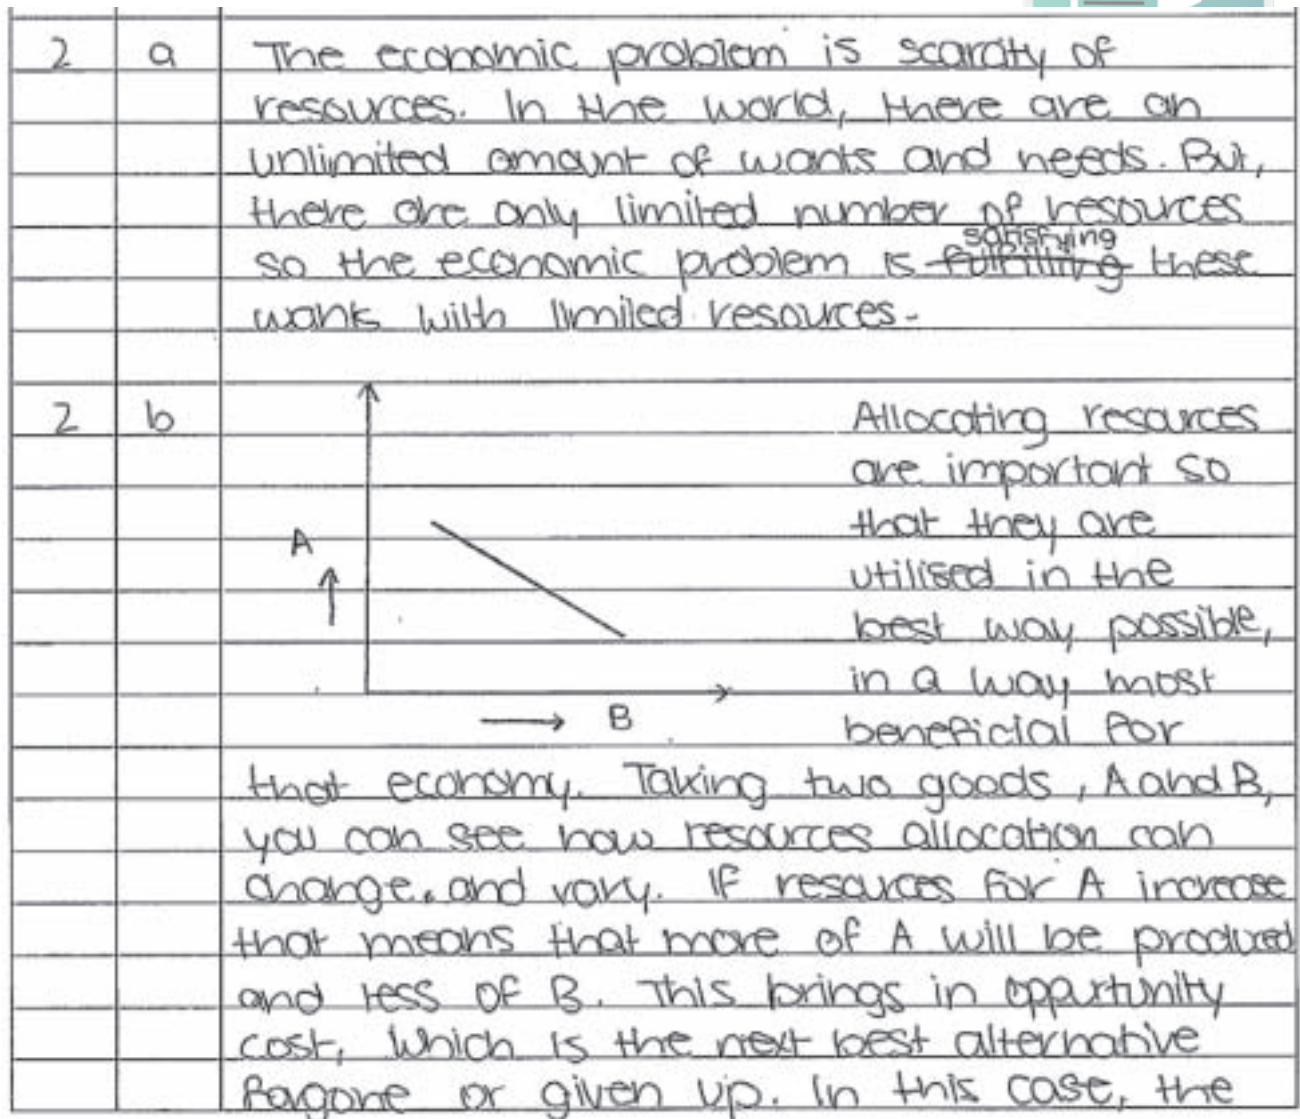 2 a The economic problem is scarcity of
resources. In the world, there are an
unlimited amount of wants and needs. But,
there are only limited number of resources
satisfying
so the economic problem is fulfilling these
wants with limited resources.
2 b Allocating resources
are important so
that they are
A utilised in the
best way possible,
in a way most
B beneficial for
that economy. Taking two goods, A and B,
you can see how resources allocation can
change. and vary. If resources for A increase
that means that more of A will be produced
and less of B. This brings in oppurtunity
cost, which is the next best alternative
fagone or given up. In this case, the